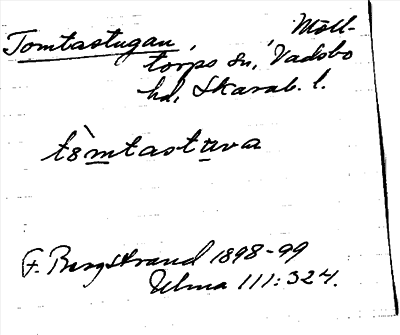 Tomtastugan, Möll-
torps sn, Vadsbo
hd, Skarab. l.
tòmtastuva
F. Bergstrand 1898-99
Ulma 111:324.